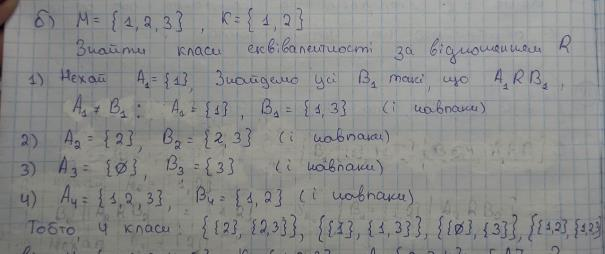 б) M = {1, 2, 3}, K = {1, 2}
Знайти класи еквівалентності за відношенням R
1) Нехай A₁ = {1}, Знайдемо усі B₁ такі, що A₁ R B₁,
A₁ ≠ B₁ : A₁ = {1}, B₁ = {1, 3} (і навпаки)
2) A₂ = {2}, B₂ = {2, 3} (і навпаки)
3) A₃ = {∅}, B₃ = {3} (і навпаки)
4) A₄ = {1, 2, 3}, B₄ = {1, 2} (і навпаки)
Тобто 4 класи: {{2}, {2,3}}, {{1}, {1,3}}, {{∅}, {3}}, {{1,2}, {1,2,3}